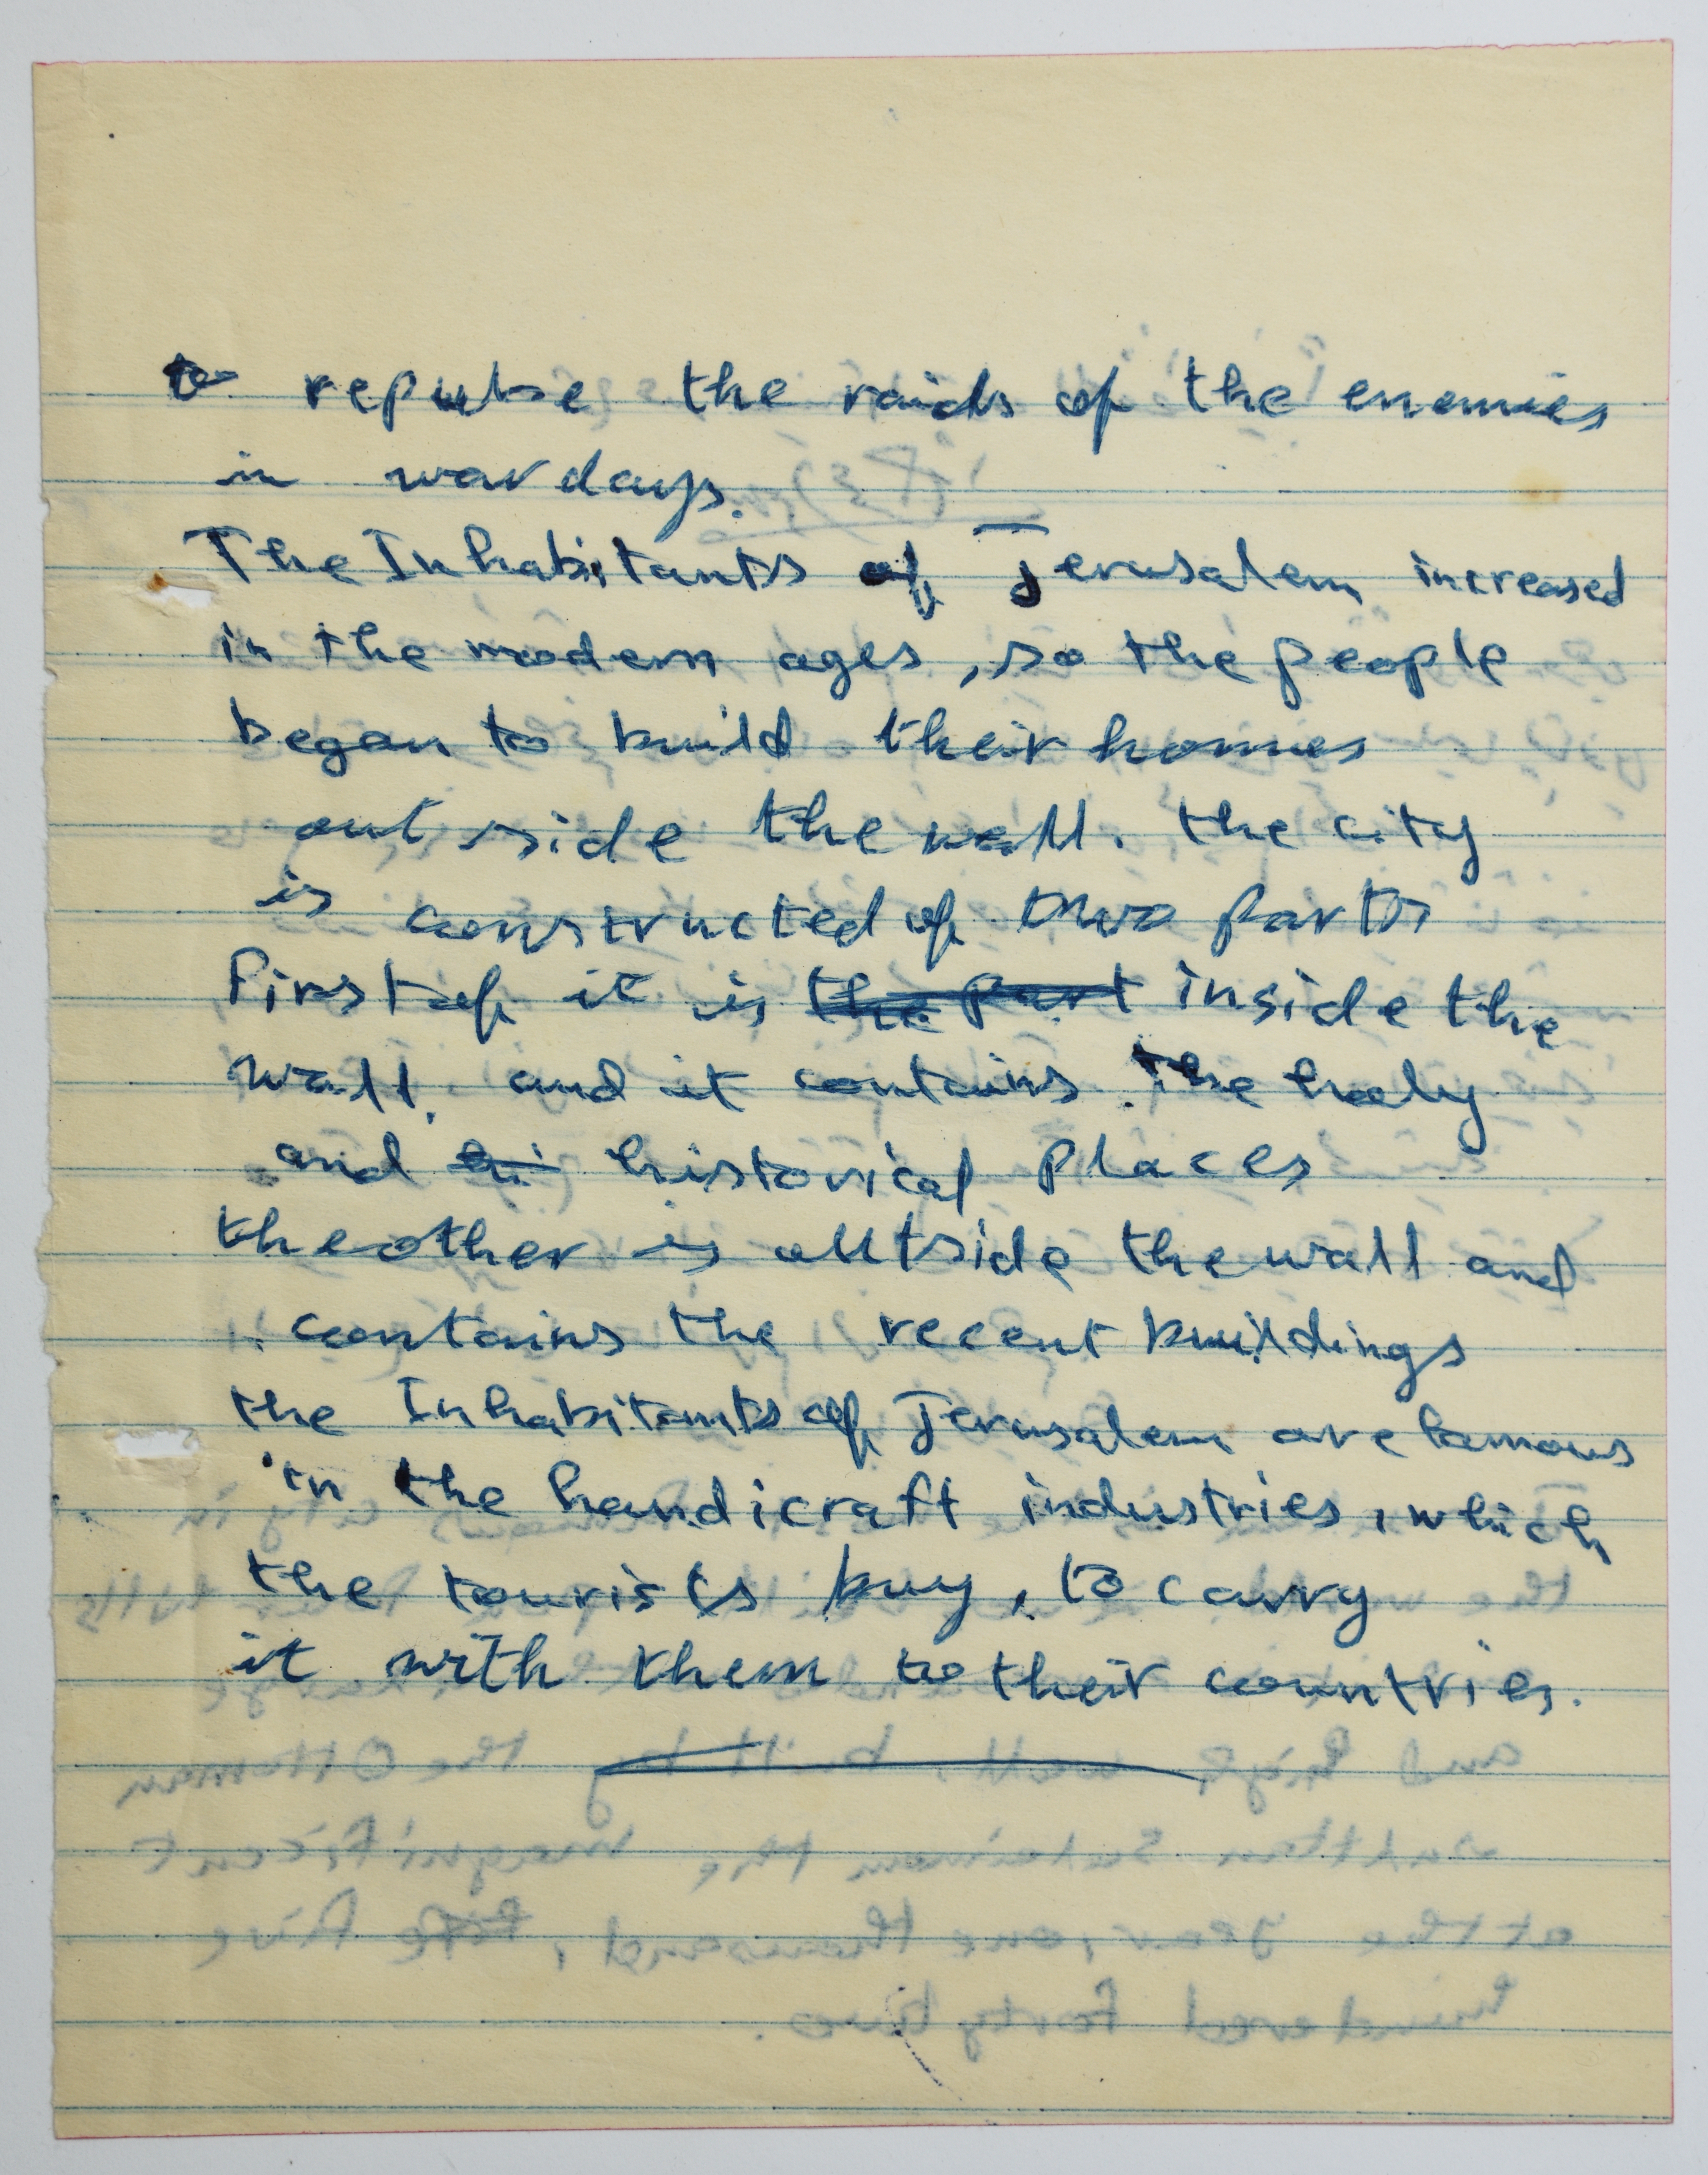 to repulse the raids of the enemies
in war days.
The Inhabitants of Jerusalem increased
in the modern ages, so the people
began to build their homes
out side the wall. the city
is constructed of two parts
first of it is ~~the part~~ inside the
wall, and it contains the holy
and ~~hi~~ historical places
the other is outside the wall and
contains the recent buildings
the Inhabitants of Jerusalem are famous
in the handicraft industries, which
the tourists buy, to carry
it with them to their countries.